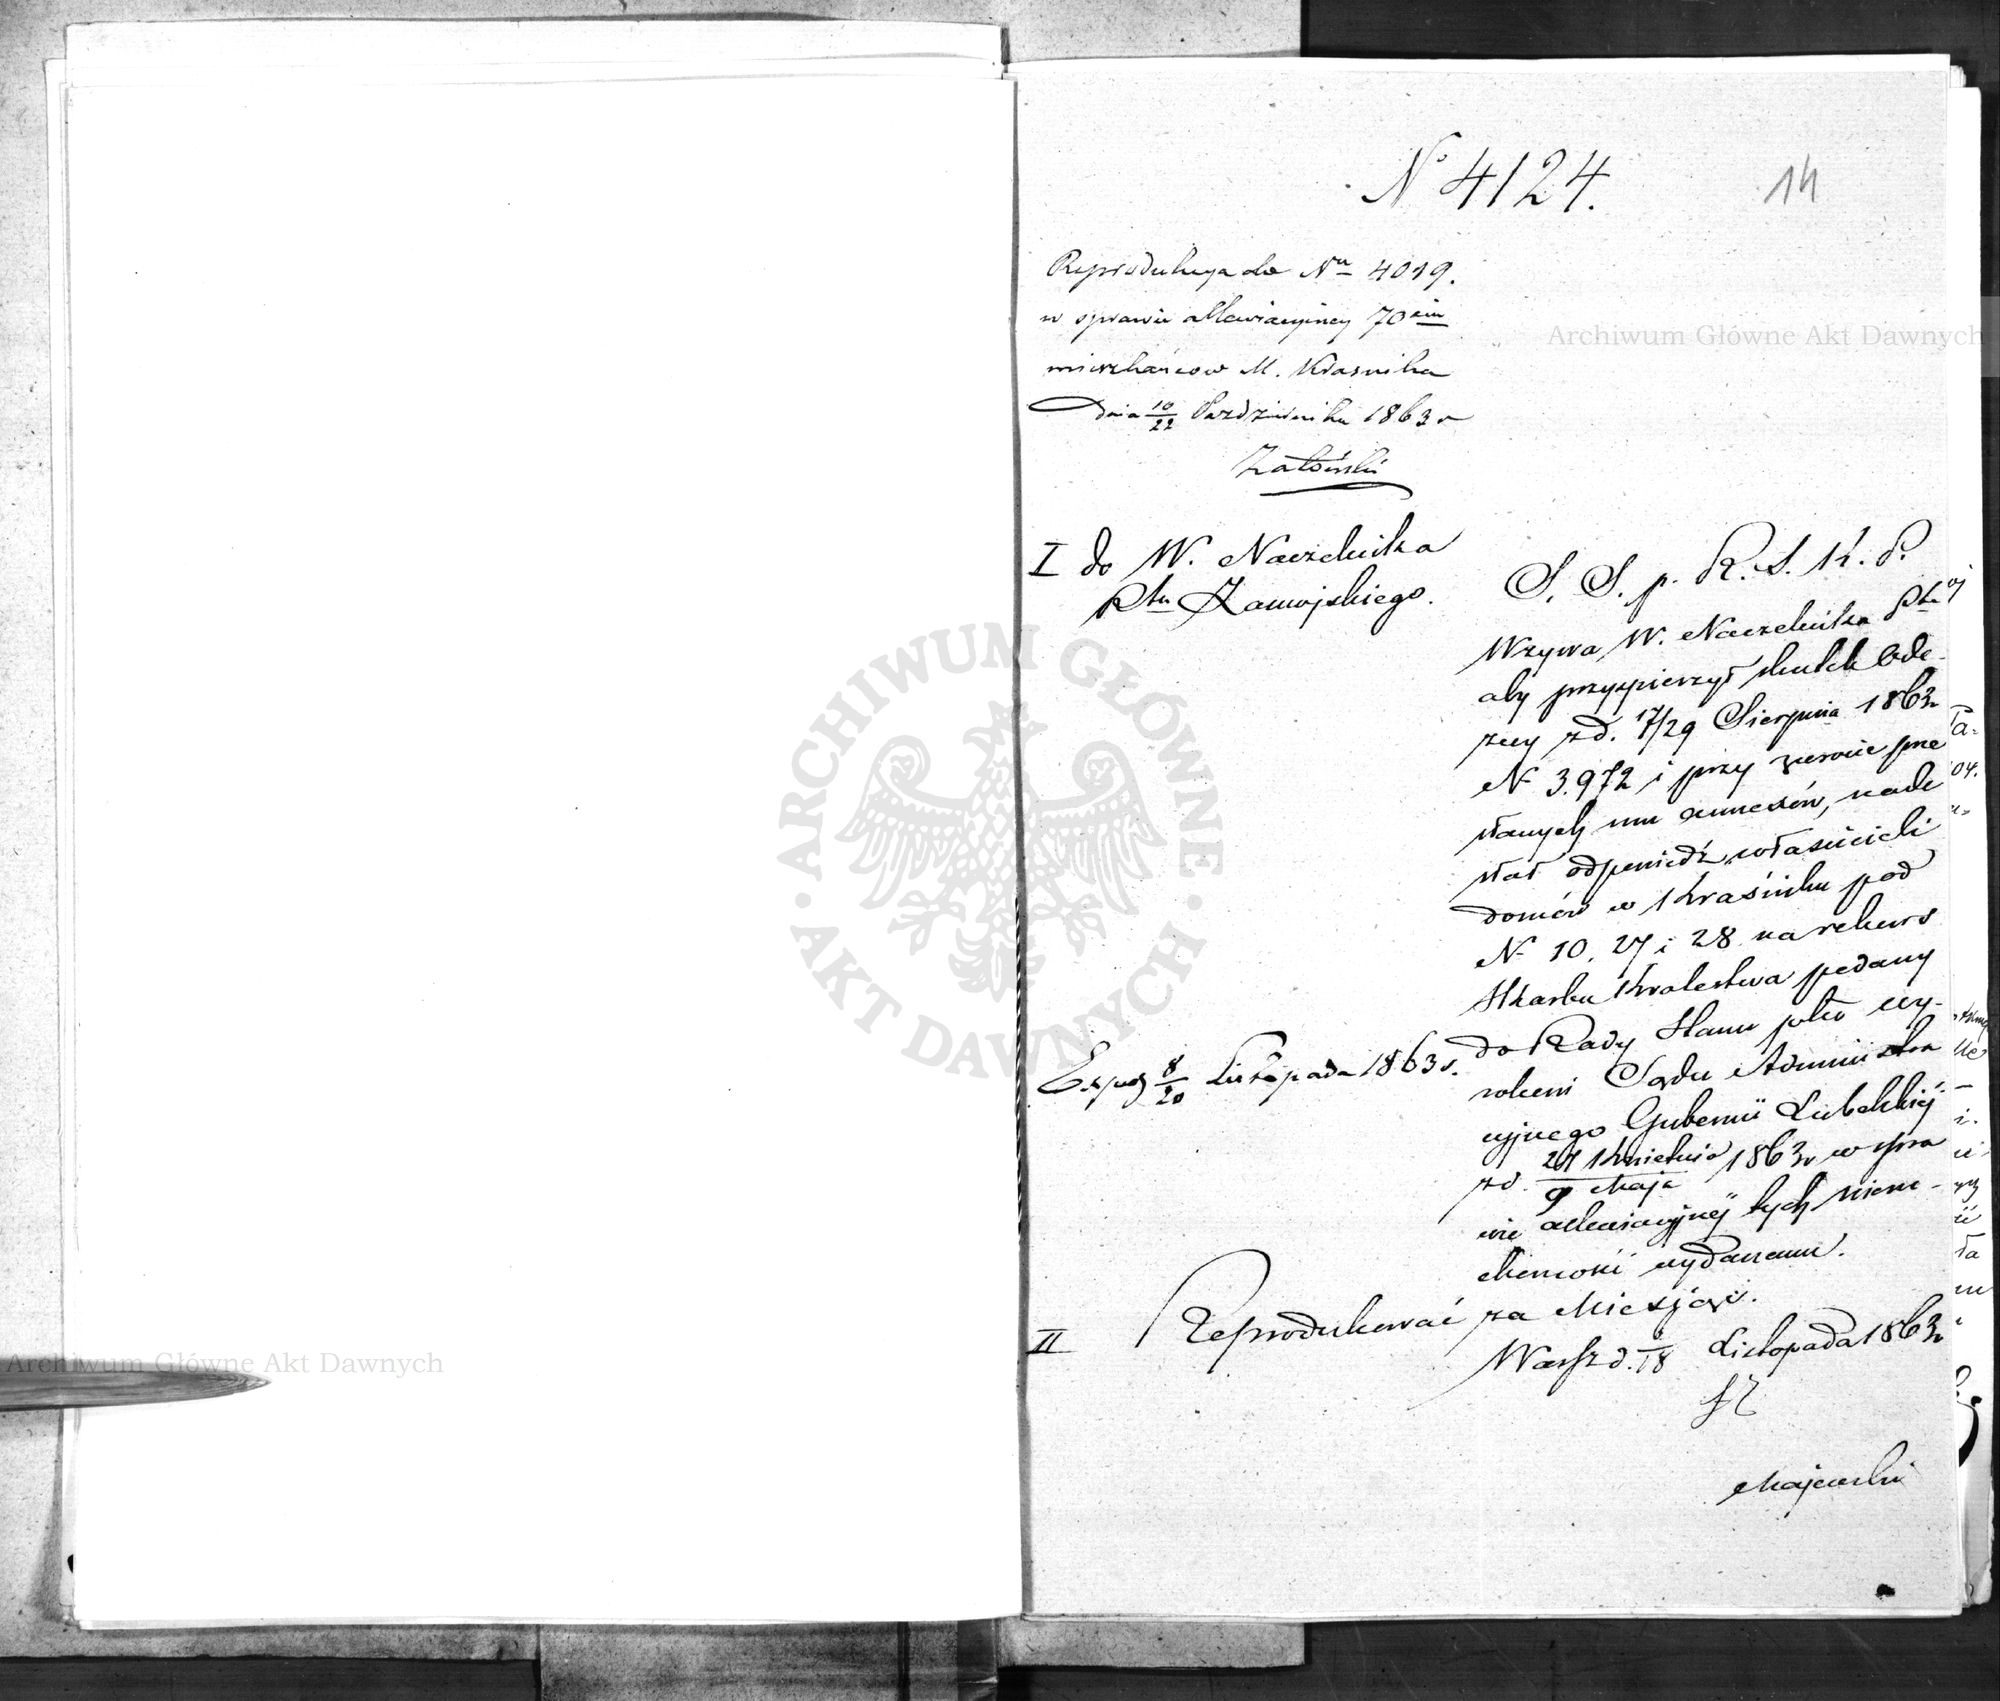 N° 4124.
14
Reprodukcya do Nu 4019.
w sprawie allewiacyjney 70ciu
mieszkańcow M. Kraśnika
Dnia 10/22 Października 1863 r
I do W. Naczelnika
Ptu Zamojskiego.
S. S. p. R. S. K. P.
Wzywa W. Naczelnika Ptu
aby przyspieszył skutek Ode-
zwy z d. 17/29 Sierpnia 1863r
N 3.972 i przy zwrocie prze
słanych mu annexów, nade
słał odpowiedź właścicieli
domów w Kraśniku pod
N 10, 27 i 28 na rekurs
Skarbu Królestwa podany
do Rady Stanu po wy-
rokiem Sądu Administra
cyjnego Gubernii Lubelskiéj
z d. 27 Kwietnia / 9 Maja 1863r w spra
wie allewiacyjnéj tych nieru-
chomości wydanemu.
Exped 8/20 Listopada 1863 r.
II Reprodukować za Miesiąc.
Warsz d. /18 Listopada 1863r
Majewski
ARCHIWUM GŁÓWNE
AKT DAWNYCH
Archiwum Główne Akt Dawnych
Archiwum Główne Akt Dawnych